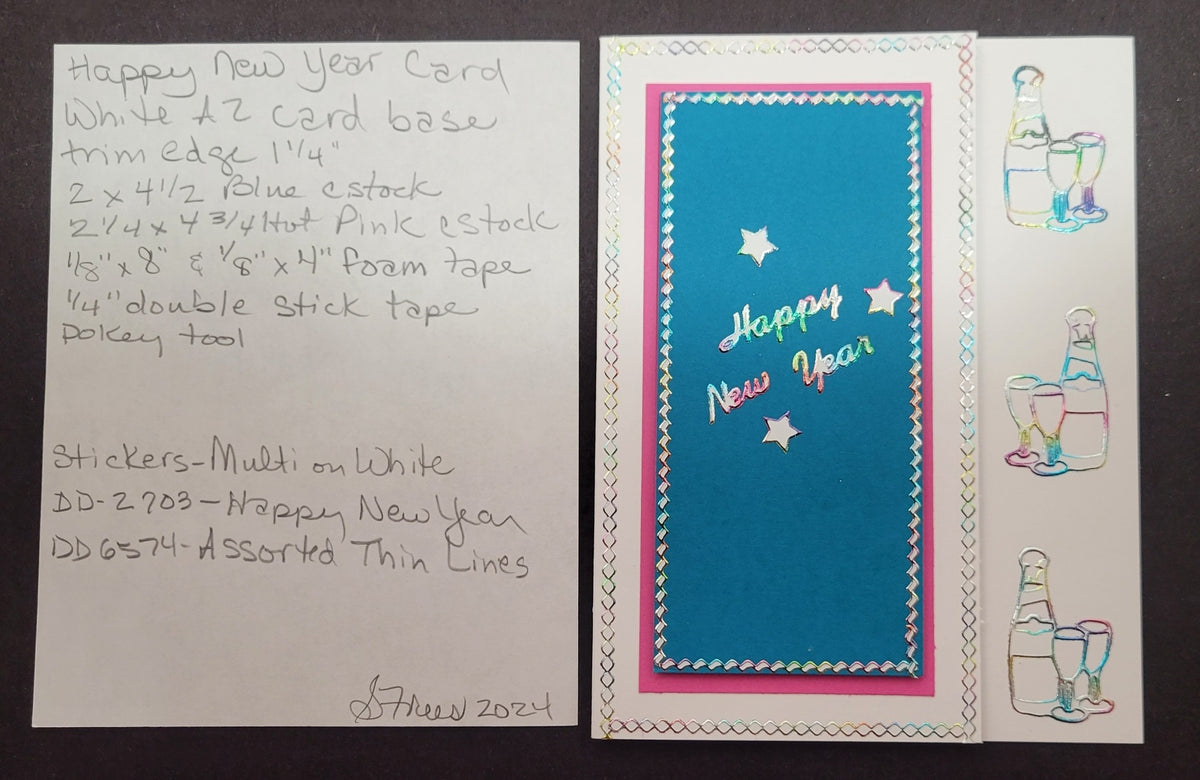 Happy New Year Card
White A2 card base
trim edge 1 1/4"
2 x 4 1/2 Blue cstock
2 1/4 x 4 3/4 Hot Pink cstock
1/8" x 8" & 1/8" x 4" foam tape
1/4" double stick tape
Pokey tool
Stickers-Multi on White
DD-2703-Happy New Year
DD6574-Assorted Thin Lines
2024
Happy
New Year